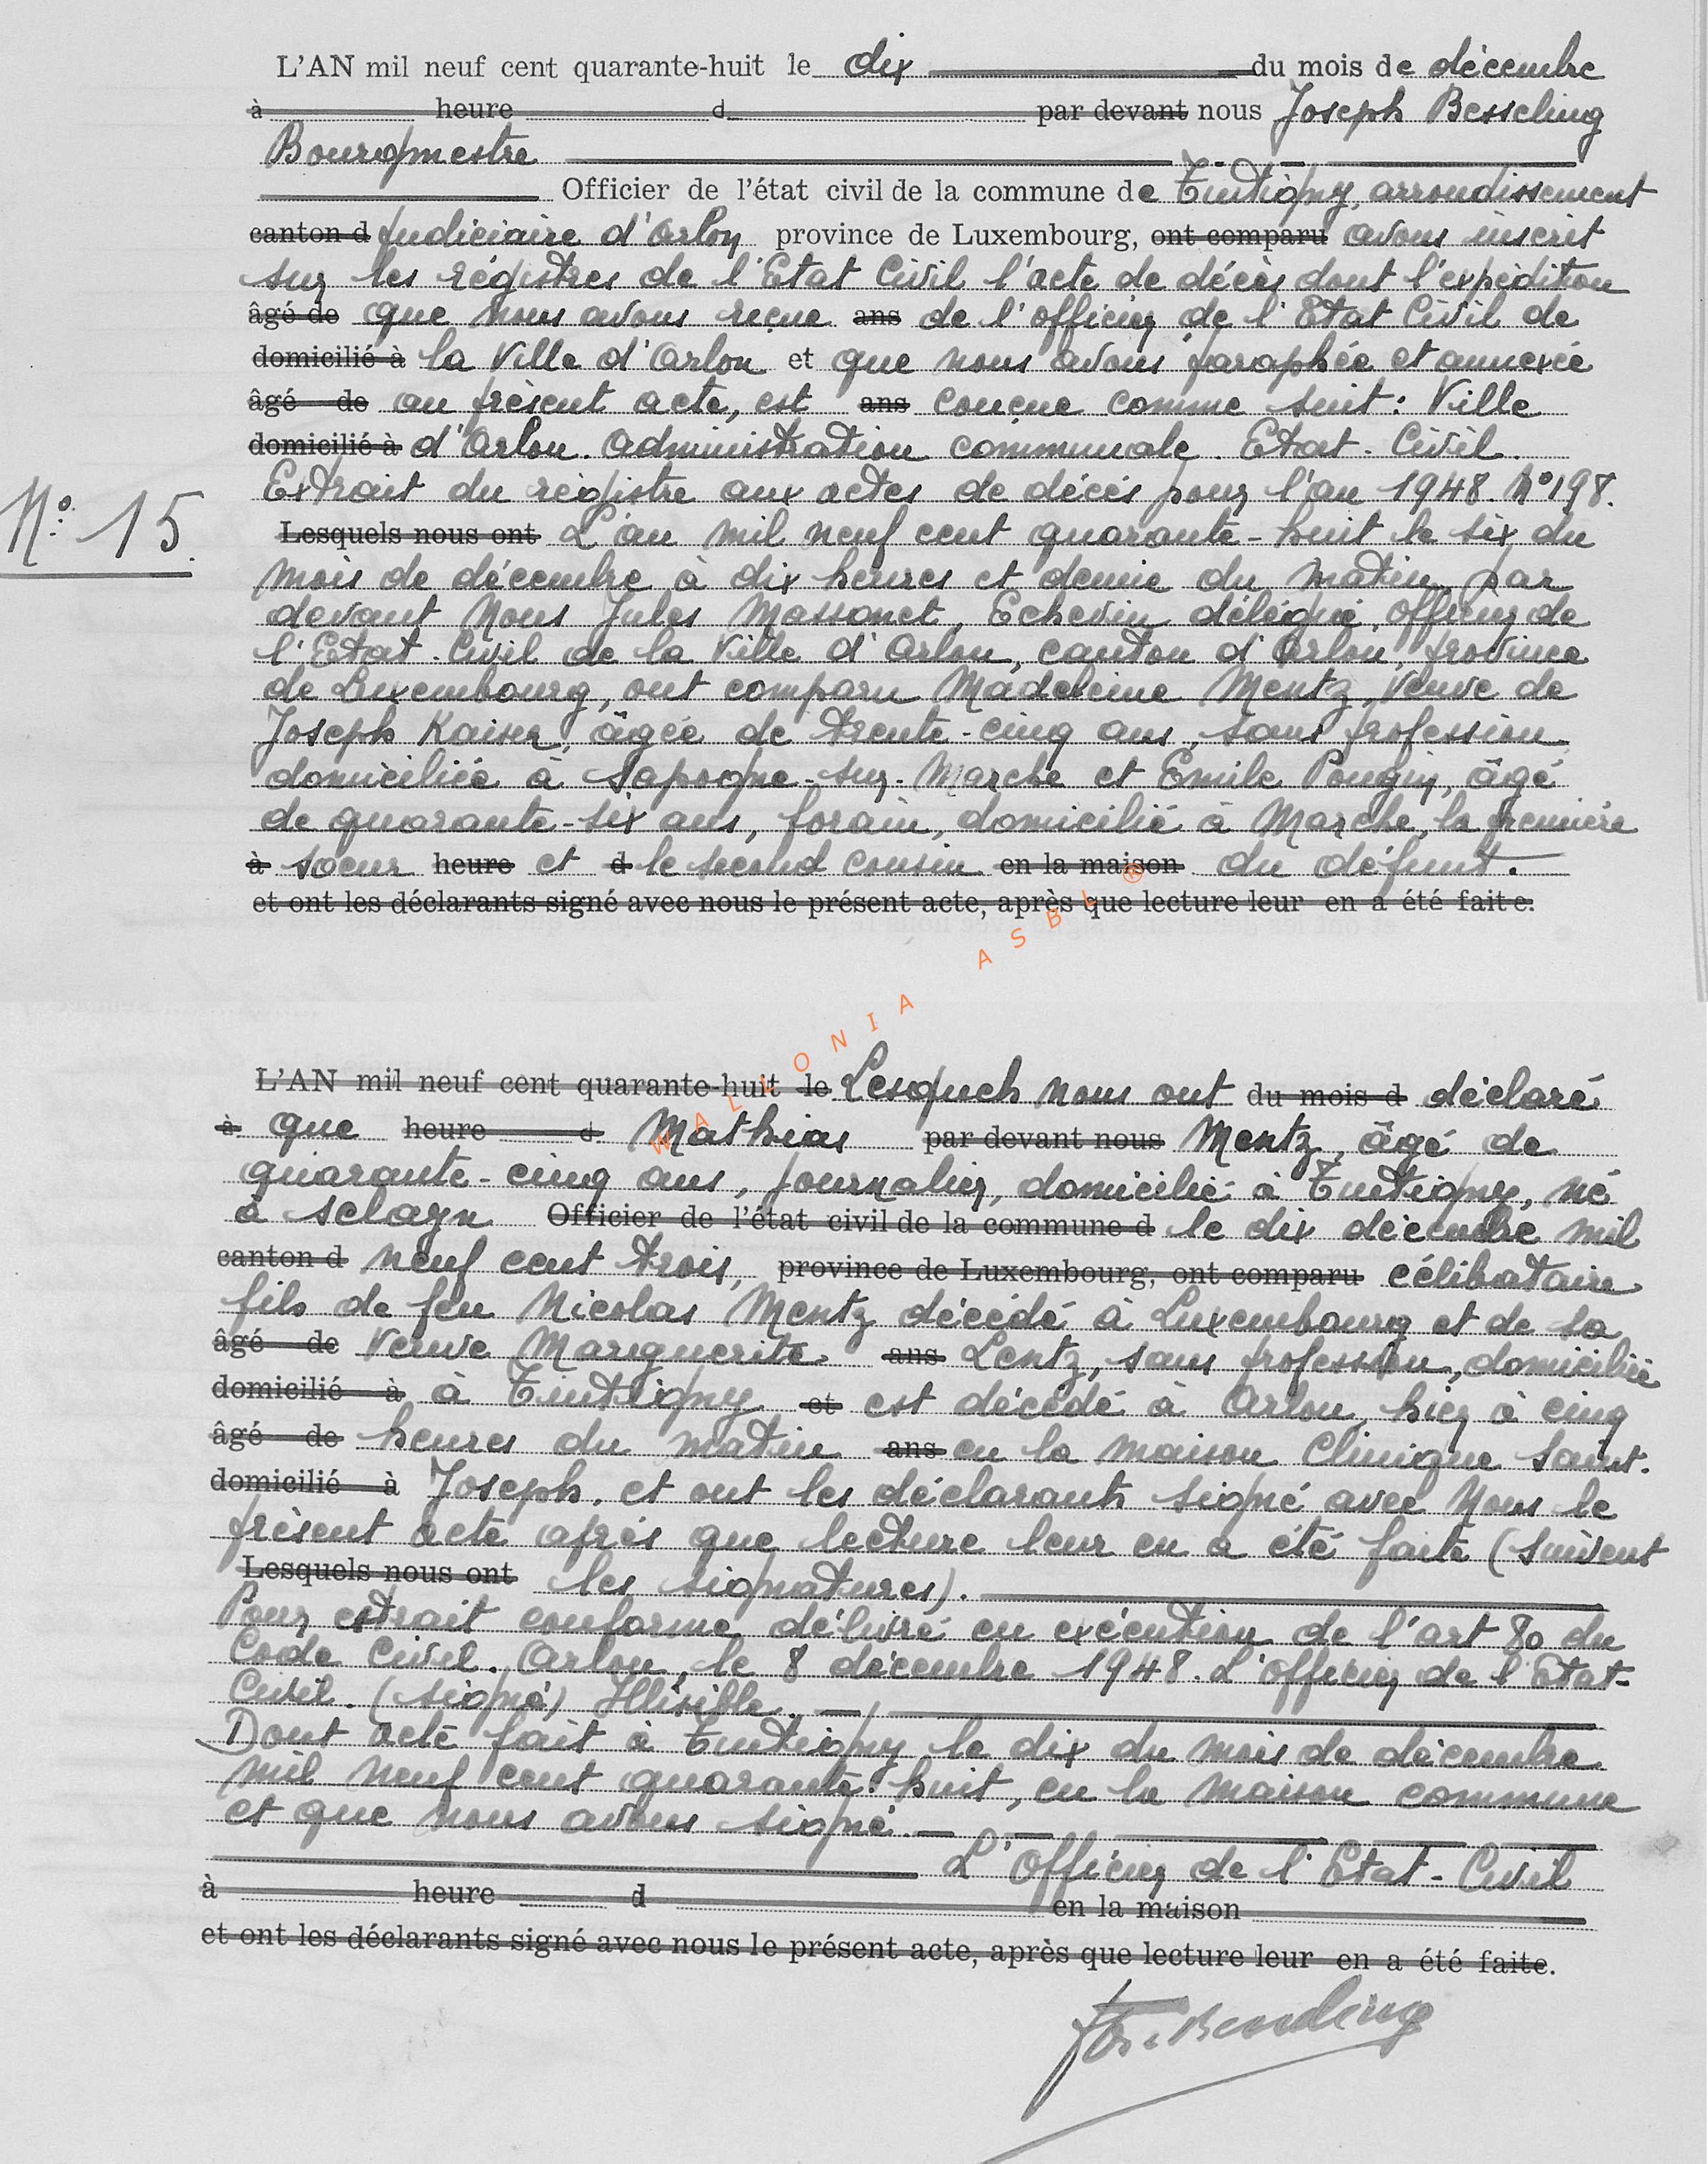 L'AN mil neuf cent quarante-huit le dix du mois de décembre
à heure d par devant nous Joseph Besseling
Bourgmestre
Officier de l'état civil de la commune de Tintigny, arrondissement
canton d judiciaire d'Arlon province de Luxembourg, ont comparu avons inscrit
sur les régistres de l'Etat Civil l'acte de décès dont l'expédition
âgé de que nous avons reçue ans de l'officier de l'Etat Civil de
domicilié à la Ville d'Arlon et que nous avons paraphée et annexée
âgé de au présent acte, est ans conçue comme suit : Ville
domicilié à d'Arlon. Administration communale. Etat-Civil.
Extrait du régistre aux actes de décès pour l'an 1948. N° 198.
N° 15.
Lesquels nous ont L'an mil neuf cent quarante-huit le six du
mois de décembre à dix heures et demie du matin, par
devant Nous Jules Massonet, Echevin délégué, officier de
l'Etat-Civil de la Ville d'Arlon, canton d'Arlon, province
de Luxembourg, ont comparu Madeleine Mentz, Veuve de
Joseph Kaiser, âgée de trente-cinq ans, sans profession
domiciliée à Sapogne-sur-Marche et Emile Pougin, âgé
de quarante-six ans, forain, domicilié à Marche, la première
à soeur heure et d le second cousin en la maison du défunt.
et ont les déclarants signé avec nous le présent acte, après que lecture leur en a été faite.
WALLONIA ASBL ®
L'AN mil neuf cent quarante-huit le Lesquels nous ont du mois d déclaré
à que heure d Mathias par devant nous Mentz, âgé de
quarante-cinq ans, journalier, domicilié à Tintigny, né
à Sclayn Officier de l'état civil de la commune d le dix décembre mil
canton d neuf cent trois, province de Luxembourg, ont comparu célibataire
fils de feu Nicolas Mentz décédé à Luxembourg et de sa
âgé de Veuve Marguerite ans Lentz, sans profession, domiciliée
domicilié à à Tintigny et est décédé à Arlon, hier à cinq
âgé de heures du matin ans en la maison Clinique Saint-
domicilié à Joseph. et ont les déclarants signé avec Nous le
présent acte après que lecture leur en a été faite (Suivent
Lesquels nous ont les signatures).
Pour extrait conforme délivré en exécution de l'art 80 du
Code Civil. Arlon, le 8 décembre 1948. L'Officier de l'Etat-
Civil. (signé) Illisible.
Dont acte fait à Tintigny le dix du mois de décembre
mil neuf cent quarante-huit, en la maison commune
et que nous avons signé.
L'Officier de l'Etat-Civil
à heure d en la maison
et ont les déclarants signé avec nous le présent acte, après que lecture leur en a été faite.
Jos. Besseling